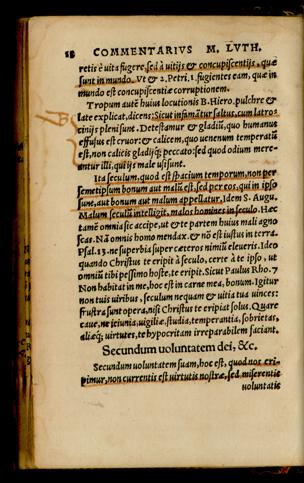 18 COMMENTARIVS M. LVTH.
retis è vita fugere, sed à vitijs & concupiscentijs, quæ
sunt in mundo. Vt & 2. Petri. 1. fugientes eam, quæ in
mundo est concupiscentiæ corruptionem.
Tropum autē huius locutionis B. Hiero. pulchre &
late explicat, dicens: Sicut infamātur saltus, cum latro-
cinijs pleni sunt. Detestamur & gladiū, quo humanus
effusus est cruor: & calicem, quo uenenum temperatū
est, non calicis gladijq; peccato: sed quod odium mere-
antur illi, qui ijs male usi sunt.
Ita seculum, quod est spacium temporum, non per
semetipsum bonum aut malū est, sed per eos, qui in ipso
sunt, aut bonum aut malum appellatur. Idem S. Augu.
Malum seculū intelligit, malos homines in seculo. Hæc
tamē omnia sic accipe, ut & te partem huius mali agno
scas. Nā omnis homo mendax. & nō est iustus in terra.
Psal. 13. ne superbia super cæteros nimiū eleueris. Ideo
quando Christus te eripit à seculo, certe à te ipso, ut
omniū tibi pessimo hoste, te eripit. Sicut Paulus Rho. 7
Non habitat in me, hoc est in carne mea, bonum. Igitur
non tuis uiribus, seculum nequam & uitia tua uinces:
frustra sunt opera, nisi Christus te eripiat solus. Quare
caue, ne ieiunia, uigiliæ, studia, temperantia, sobrietas,
aliæq; virtutes, te hypocritam irreparabilem faciant.
Secundum uoluntatem dei, &c.
Secundum uoluntatem suam, hoc est, quod nos eri-
pimur, non currentis est virtutis nostræ, sed miserentis
voluntatis